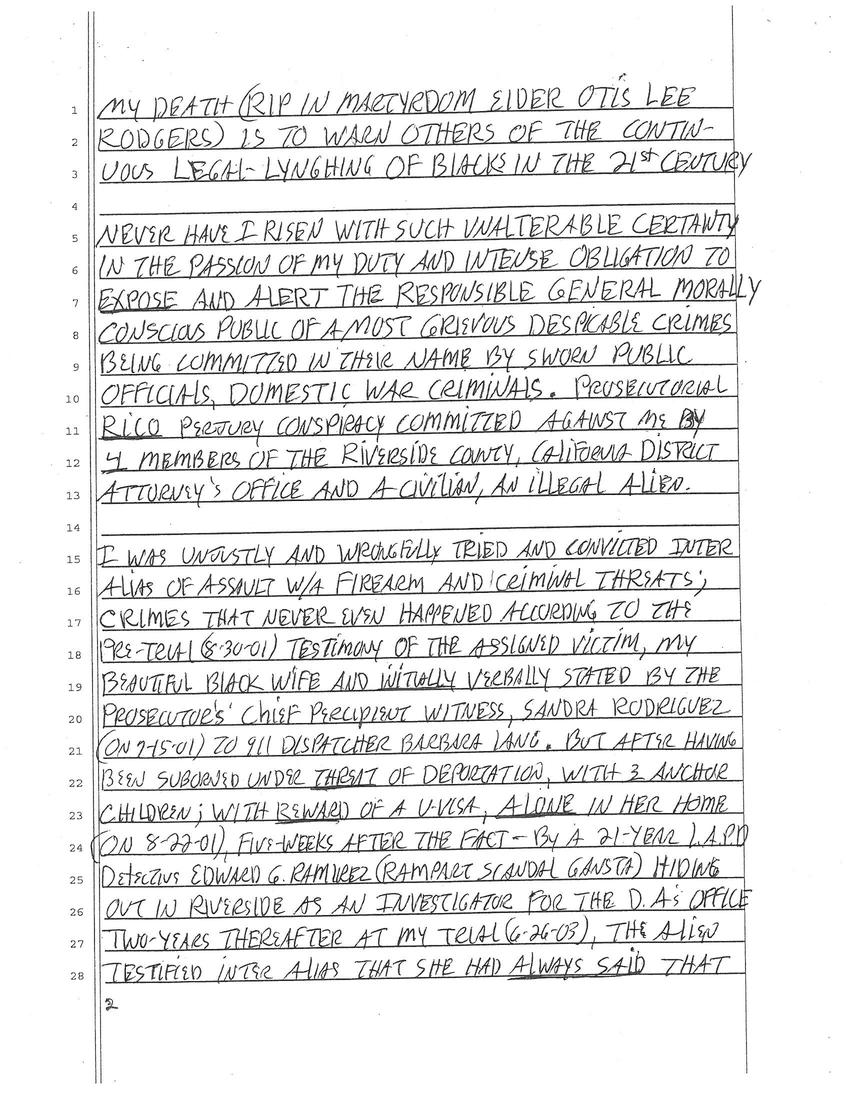 1 MY DEATH (RIP IN MARTYRDOM ElDER OTIS LEE
2 RODGERS) IS TO WARN OTHERS OF THE CONTIN-
3 UOUS LEGAL-LYNGHING OF BlACKS IN THE 21st CENTURY
4
5 NEVER HAVE I RISEN WITH SUCH UNALTERABLE CERTAINTY
6 IN THE PASSION OF MY DUTY AND INTENSE OBLIGATION TO
7 EXPOSE AND ALERT THE RESPONSIBLE GENERAL MORALLY
8 CONSCIOUS PUBLIC OF A MOST GRIEVOUS DESPICABLE CRIMES
9 BEING COMMITTED IN THEIR NAME BY SWORN PUBLIC
10 OFFICIAlS, DOMESTIC WAR CRIMINAlS. PROSECUTORIAL
11 RICO PERJURY CONSPIRACY COMMITTED AGAINST ME BY
12 4 MEMBERS OF THE RIVERSIDE COUNTY, CAlIFORNIA DISTRICT
13 ATTORNEY'S OFFICE AND A CIVILIAN, AN IllEGAL AlIEN.
14
15 I WAS UNJUSTLY AND WRONGFUllY TRIED AND CONVICTED INTER
16 AlIAS OF ASSAULT W/A FIREARM AND 'CRIMINAL THREATS';
17 CRIMES THAT NEVER EVEN HAPPENED ACCORDING TO THE
18 PRE-TRIAl (8-30-01) TESTIMONY OF THE ASSIGNED VICTIM, MY
19 BEAUTIFUL BLACK WIFE AND INITIALLY VERBALLY STATED BY THE
20 PROSECUTOR'S' CHIEF PERCIPIENT WITNESS, SANDRA RODRIGUEZ
21 (ON 7-15-01) TO 911 DISPATCHER BARBARA LANG. BUT AFTER HAVING
22 BEEN SUBORNED UNDER THREAT OF DEPORTATION, WITH 3 ANCHOR
23 CHILDREN; WITH REWARD OF A U-VISA, ALONE IN HER HOME
24 (ON 8-22-01), FIVE-WEEKS AFTER THE FACT - BY A 21-YEAR L.A.P.D
25 DETECTIVE EDWARD G. RAMIREZ (RAMPART SCANDAL GANSTA) HIDING
26 OUT IN RIVERSIDE AS AN INVESTIGATOR FOR THE D.A's OFFICE
27 TWO-YEARS THEREAFTER AT MY TRIAL (6-26-03), THE AlIEN
28 TESTIFIED INTER AlIAS THAT SHE HAD ALWAYS SAID THAT
2